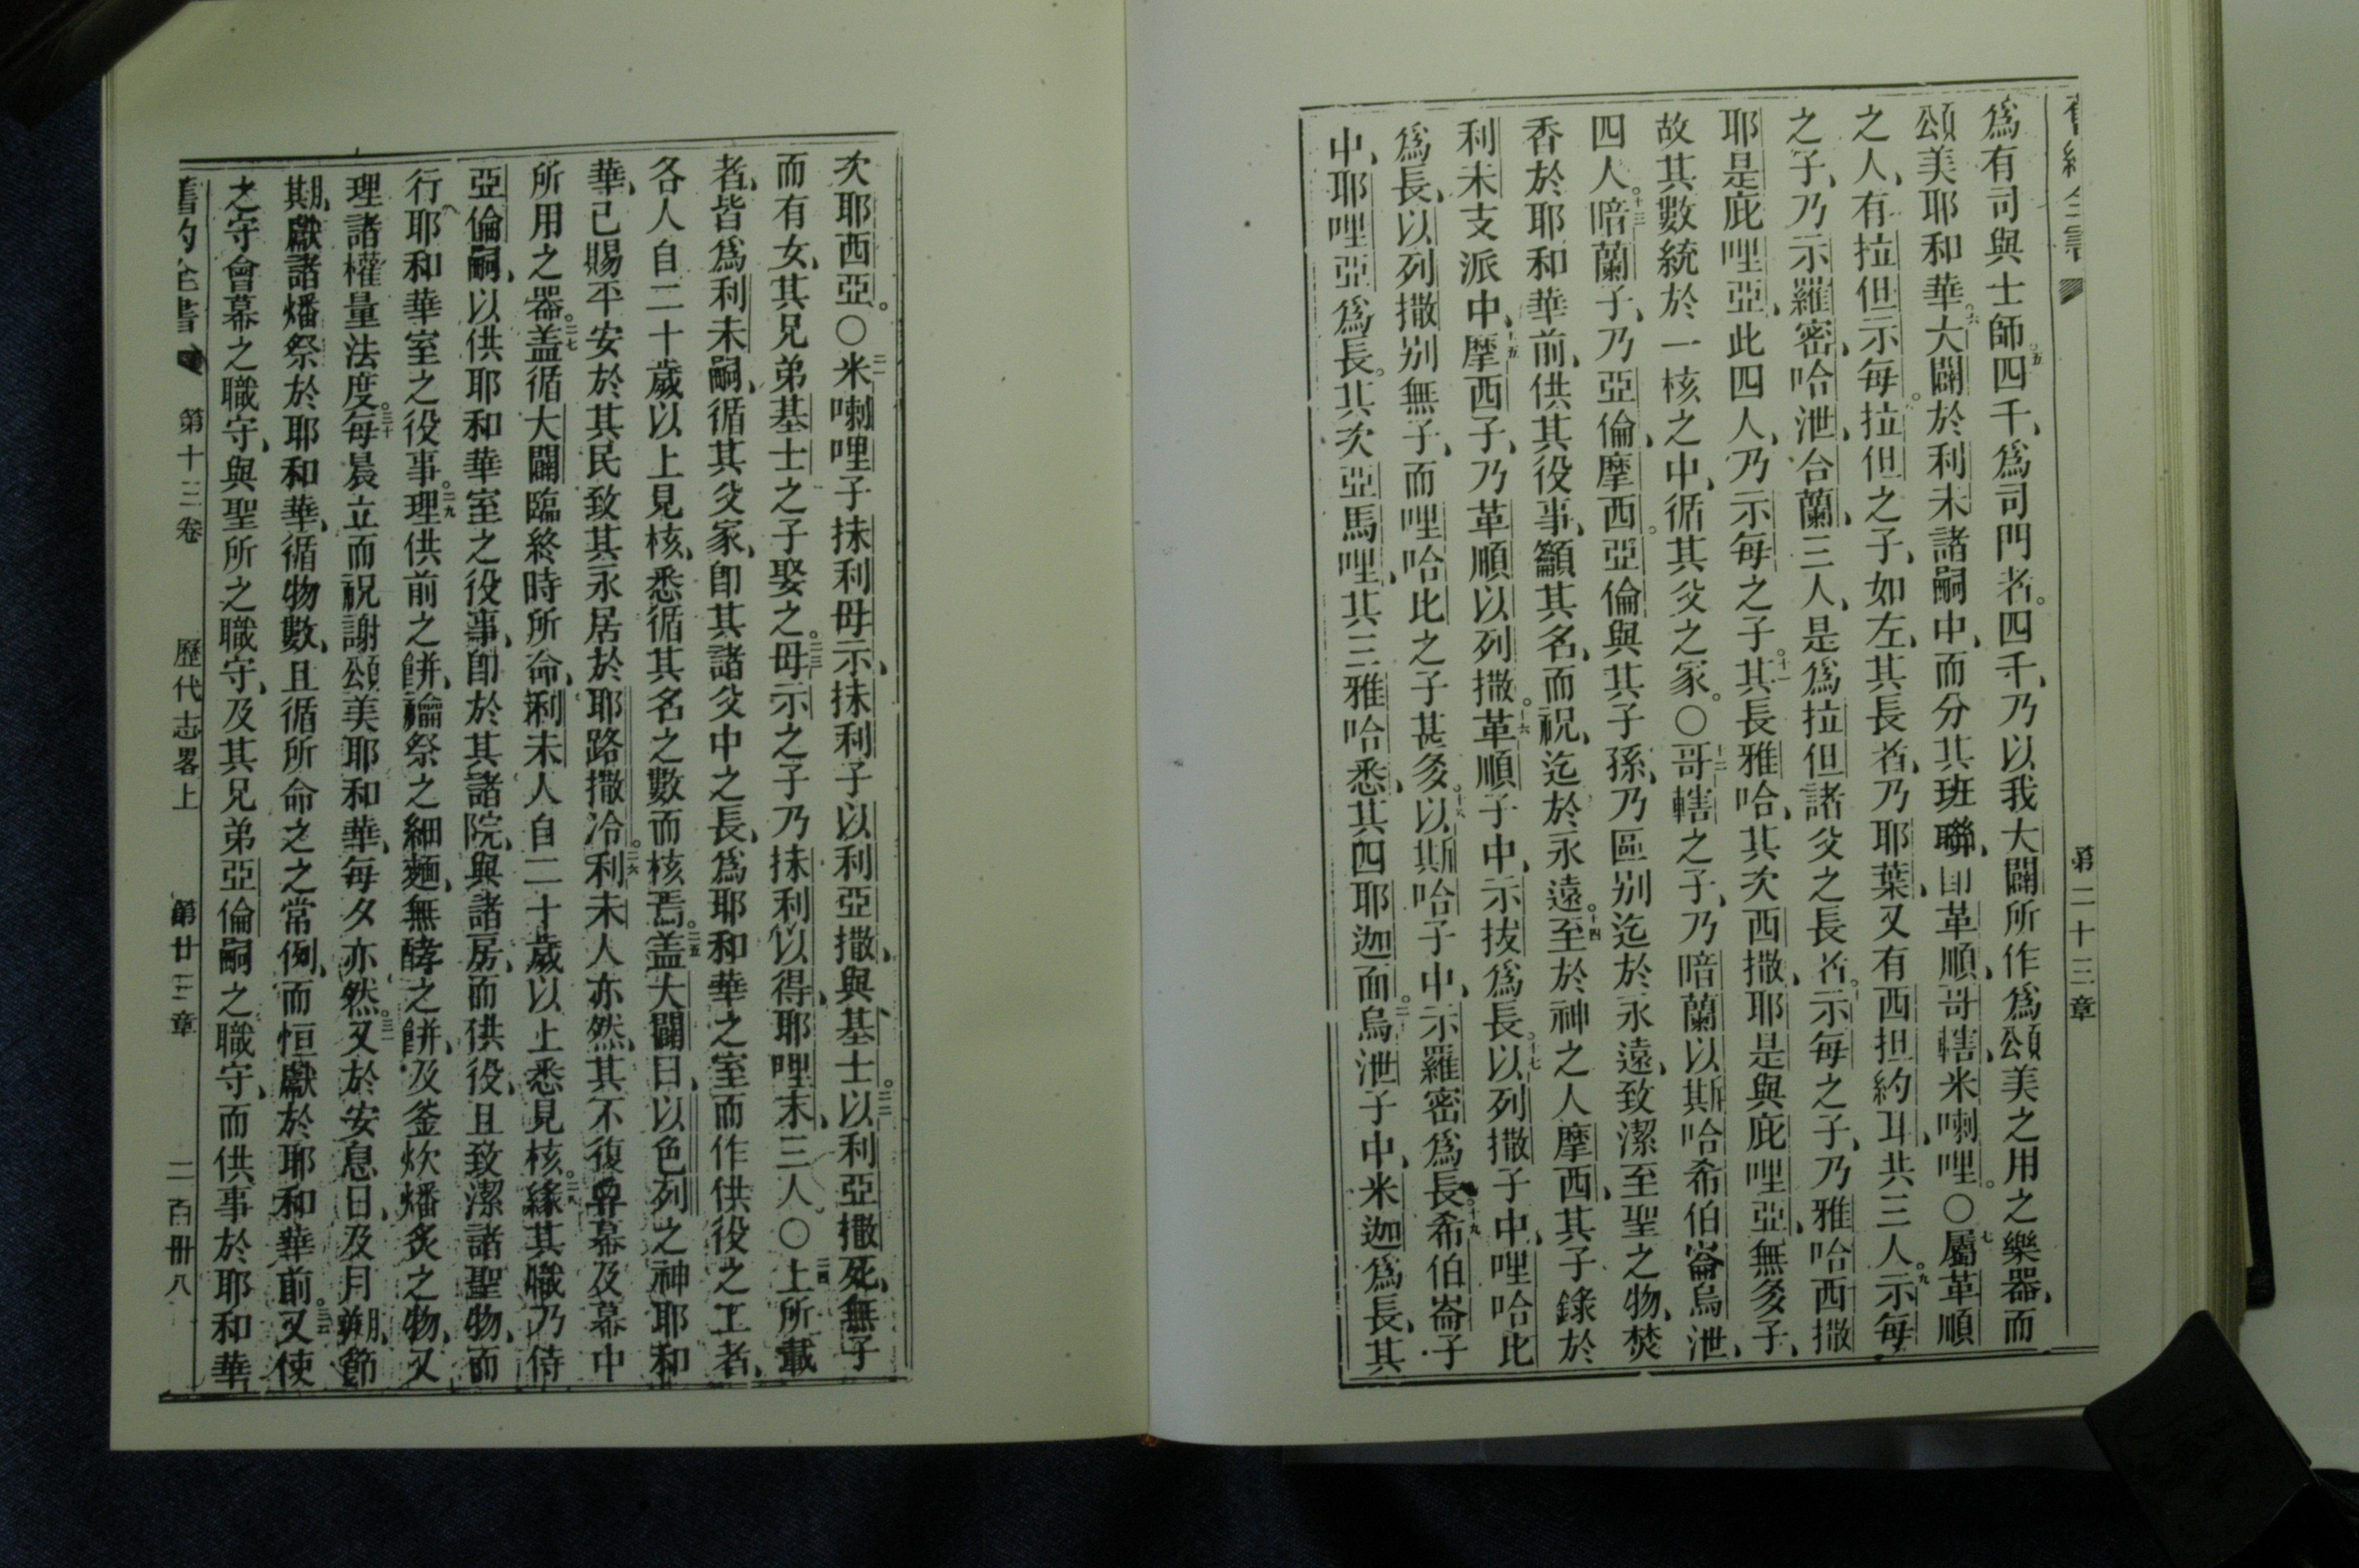 第二十三章
爲有司與士師四千、爲司門者。四千、乃以我大闢所作爲頌美之用之樂器、而
頌美耶和華。大闢於利未諸嗣中、而分其班聯、卽革順、哥轄、米喇哩。○屬革順
之人、有拉但示每。拉但之子、如左、其長者、乃耶葉、又有西担約耳、共三人。示每
之子、乃示羅密、哈泄、合蘭、三人、是爲拉但諸父之長者。示每之子、乃雅哈西撒
耶是庇哩亞、此四人、乃示每之子。其長雅哈、其次西撒、耶是與庇哩亞、無多子、
故其數統於一核之中、循其父之家。○哥轄之子、乃暗蘭以斯哈希伯崙烏泄、
四人。暗蘭子、乃亞倫、摩西。亞倫與其子孫、乃區别迄於永遠、致潔至聖之物、焚
香於耶和華前、供其役事、籲其名、而祝、迄於永遠。至於神之人摩西、其子錄於
利未支派中、摩西子、乃革順以列撒。革順子中、示拔爲長。以列撒子中、哩哈比
爲長、以列撒别無子、而哩哈比之子甚多。以斯哈子中、示羅密爲長。希伯崙子
中、耶哩亞爲長。其次亞馬哩、其三雅哈悉、其四耶迦面。烏泄子中、米迦爲長、其
次耶西亞。○米喇哩子抹利母示、抹利子以利亞撒、與基士。以利亞撒死、無子
而有女、其兄弟基士之子娶之。母示之子乃抹利以得、耶哩末、三人。○上所載
者、皆爲利未嗣、循其父家、卽其諸父中之長、爲耶和華之室而作供役之工者、
各人自二十歲以上見核、悉循其名之數而核焉。盖大闢曰、以色列之神耶和
華、已賜平安於其民致其永居於耶路撒冷。利未人亦然、其不復舁幕及幕中
所用之器。盖循大闢臨終時所命、利未人自二十歲以上悉見核。緣其職乃侍
亞倫嗣、以供耶和華室之役事、卽於其諸院、與諸房、而供役、且致潔諸聖物、而
行耶和華室之役事。理供前之餅、禴祭之細麵、無酵之餅、及釜炊燔炙之物、又
理諸權量法度。每晨立而祝謝頌美耶和華、每夕亦然。又於安息日、及月朔、節
期、獻諸燔祭於耶和華、循物數、且循所命之之常例、而恒獻於耶和華前。又使
之守會幕之職守、與聖所之職守、及其兄弟亞倫嗣之職守、而供事於耶和華
舊約全書 第十三卷 歷代志畧上 第廿三章 二百卌八